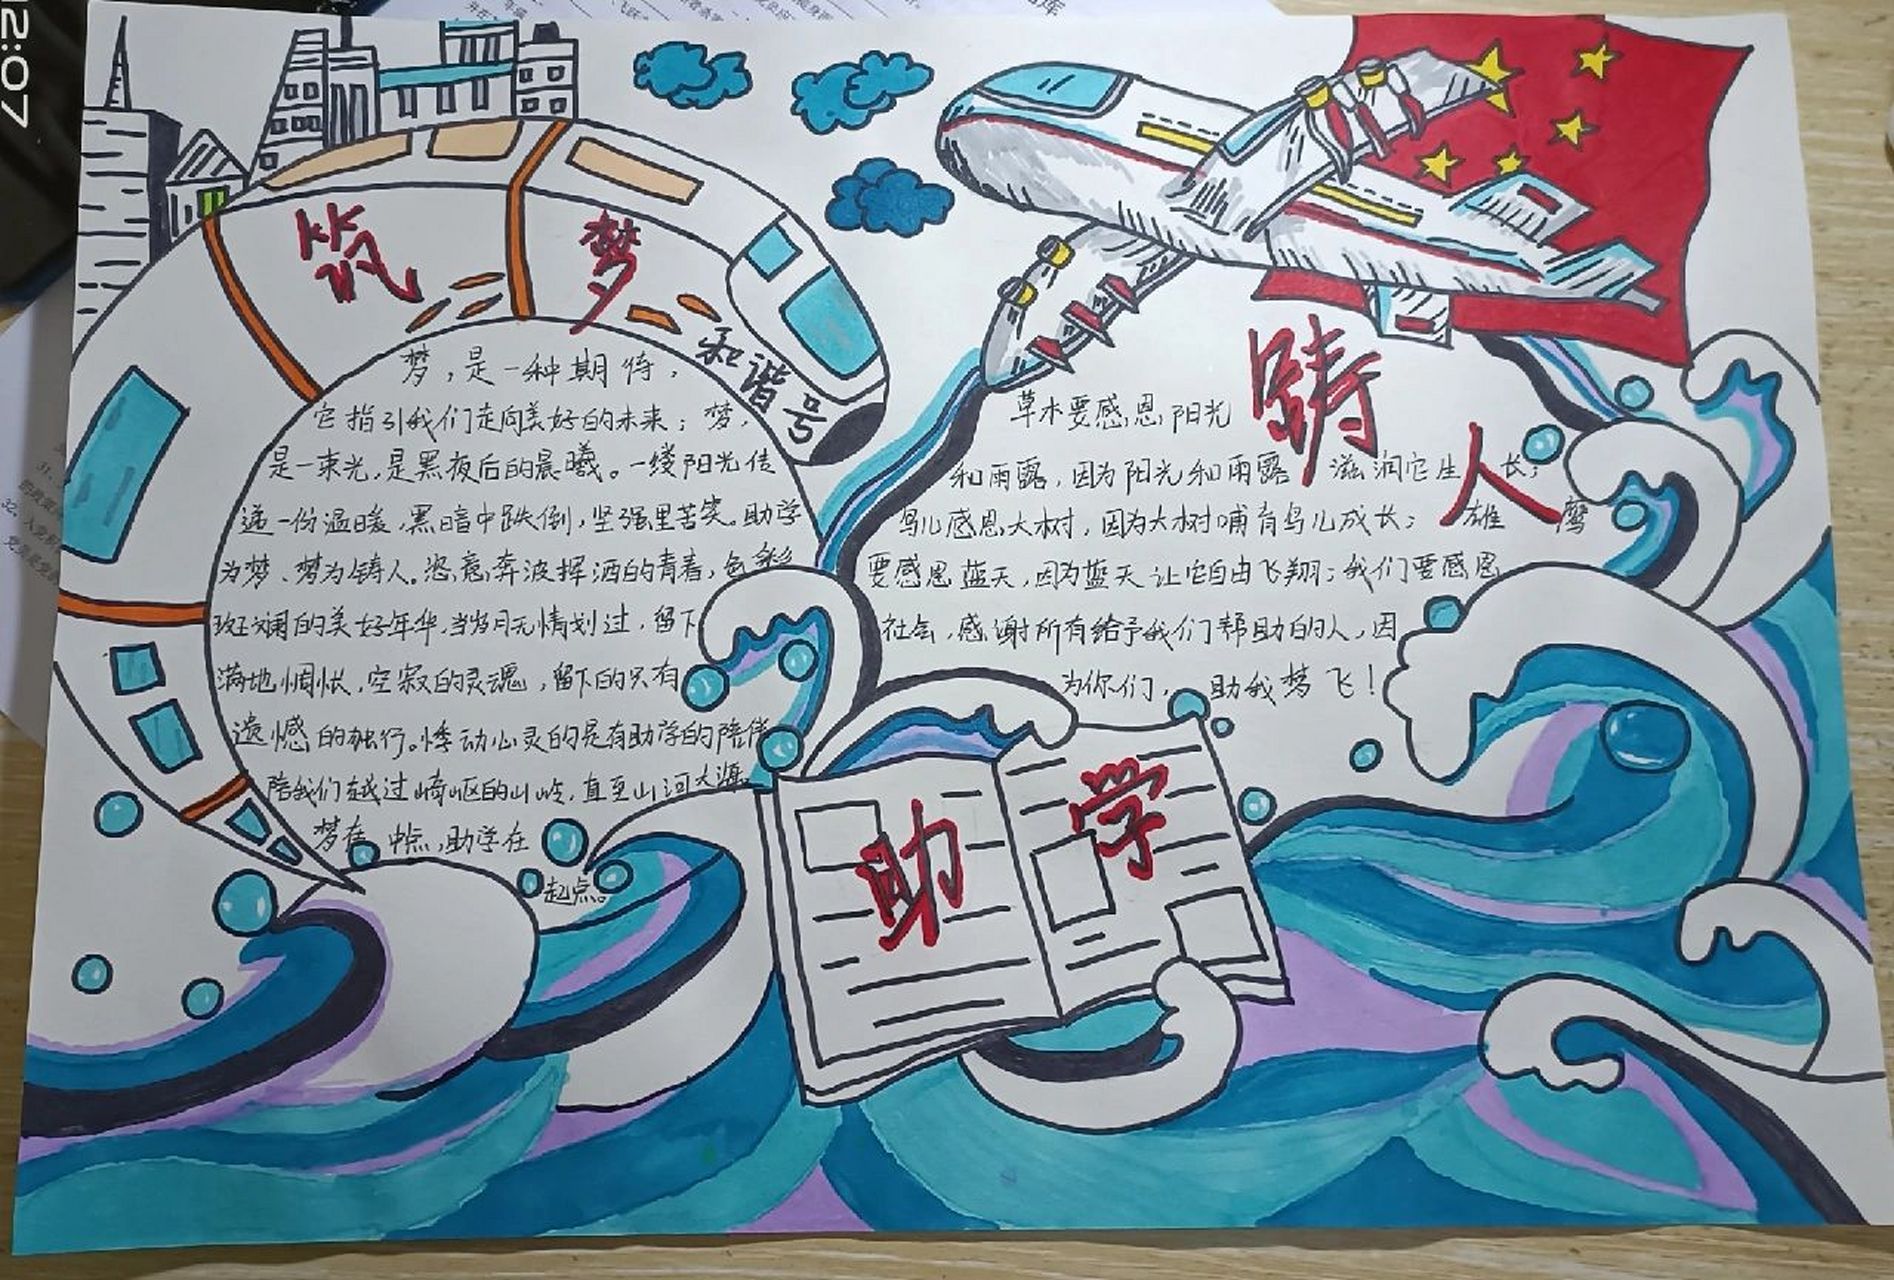 12:07
筑梦
和谐号
梦，是一种期待，
它指引我们走向美好的未来；梦，
是一束光，是黑夜后的晨曦。一缕阳光传
递一份温暖，黑暗中跌倒，坚强里苦笑。助学
为梦、梦为铸人。恣意奔波挥洒的青春，色彩
斑斓的美好年华，当岁月无情划过，留下
满地惆怅，空寂的灵魂，留下的只有
遗憾的独行。悸动心灵的是有助学的陪伴
陪我们越过崎岖的山岭，直至山河大海。
梦在 中点，助学在
起点。
铸人
草木要感恩阳光
和雨露，因为阳光和雨露 滋润它生长；
鸟儿感恩大树，因为大树哺育鸟儿成长； 雄鹰
要感恩蓝天，因为蓝天让它自由飞翔；我们要感恩
社会，感谢所有给予我们帮助的人，因
为你们， 助我梦飞！
助学